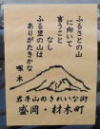 ふるさとの山
に向ひて
言うこと
なし
ふる里の山は
ありがたきかな
啄木
岩手山のきれいな街
盛岡・材木町